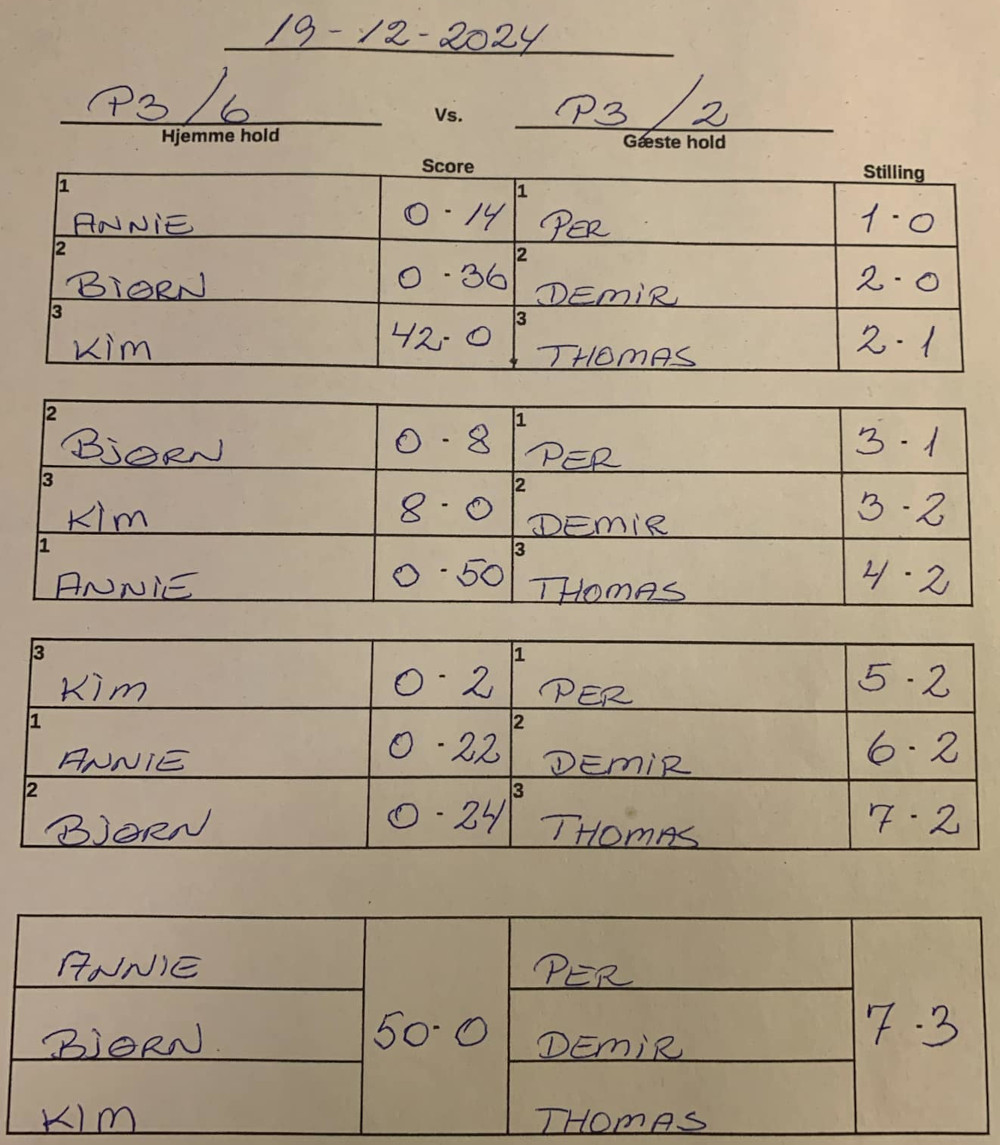 19-12-2024
P3/6 Vs. P3/2
Hjemme hold Gæste hold
Score Stilling
1 ANNiE 0 - 14 1 PER 1 - 0
2 BJØRN 0 - 36 2 DEMiR 2 - 0
3 KiM 42 - 0 3 THOMAS 2 - 1
2 BJØRN 0 - 8 1 PER 3 - 1
3 KiM 8 - 0 2 DEMiR 3 - 2
1 ANNiE 0 - 50 3 THOMAS 4 - 2
3 KiM 0 - 2 1 PER 5 - 2
1 ANNiE 0 - 22 2 DEMiR 6 - 2
2 BJØRN 0 - 24 3 THOMAS 7 - 2
ANNiE PER
BJØRN 50 - 0 DEMiR 7 - 3
KiM THOMAS